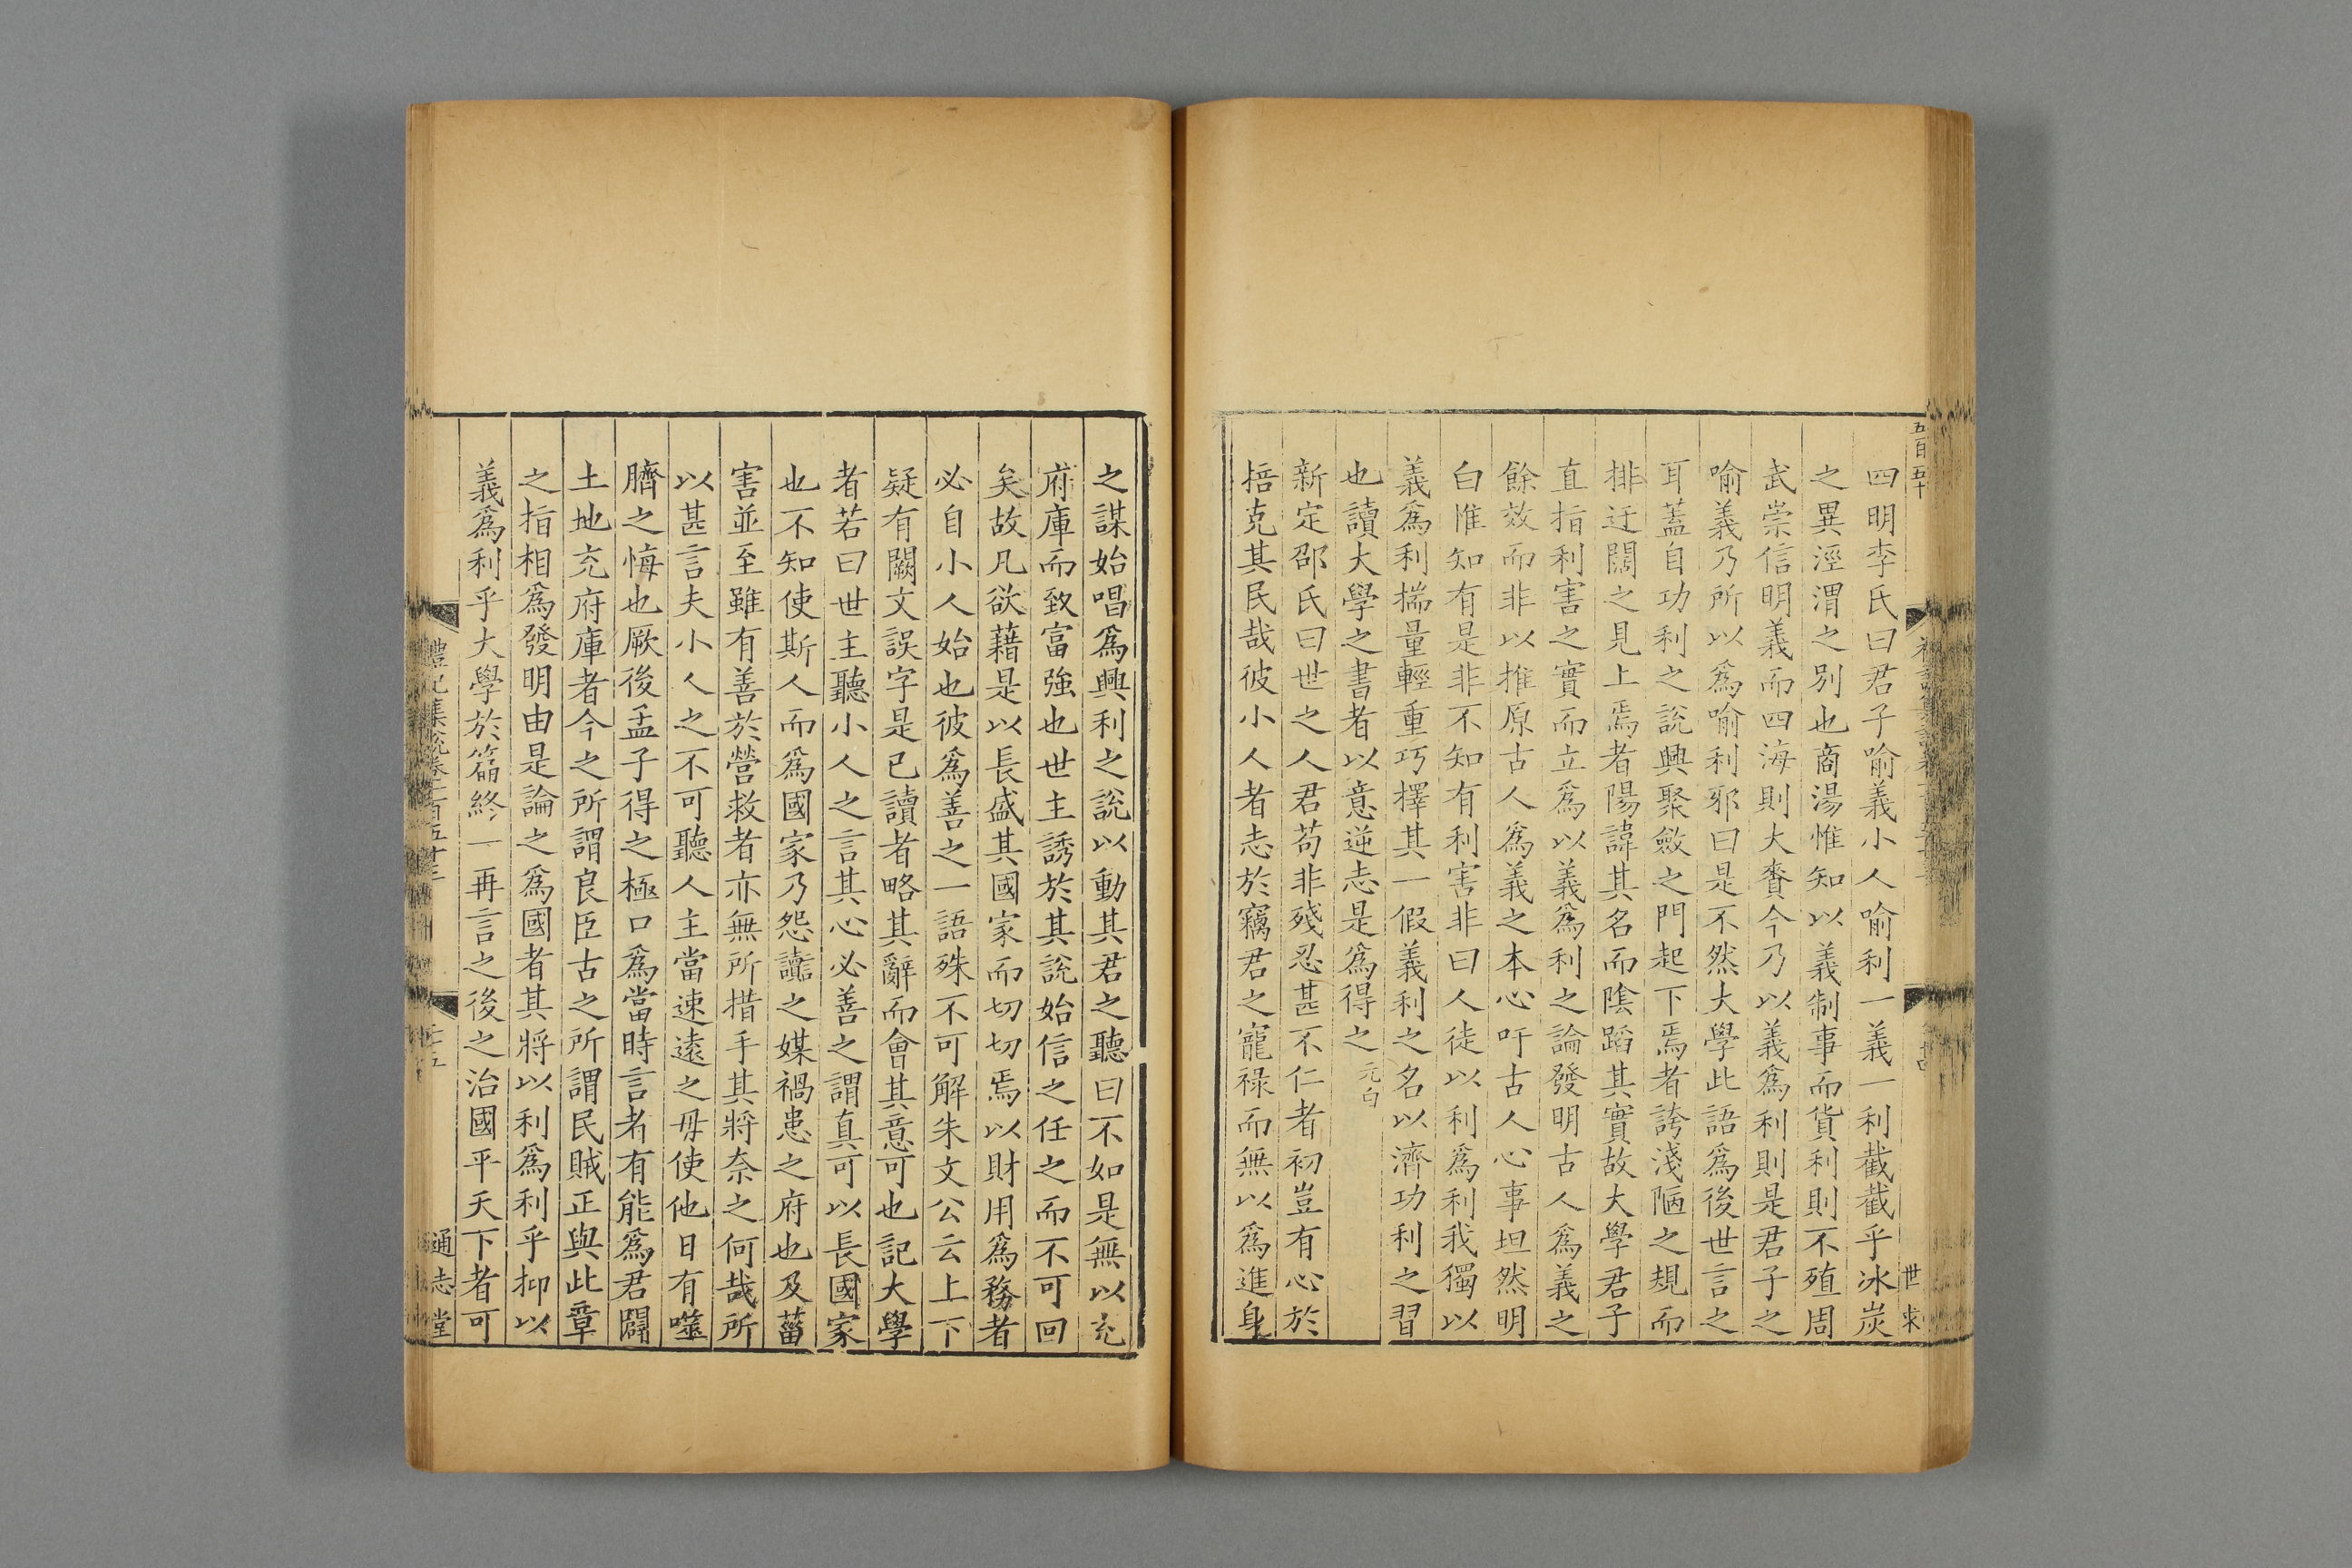 五百五十
四明李氏曰君子喻義小人喻利一義一利截截乎冰炭
之異涇渭之別也商湯惟知以義制事而貨利則不殖周
武崇信明義而四海則大賚今乃以義爲利則是君子之
喻義乃所以爲喻利邪曰是不然大學此語爲後世言之
耳蓋自功利之說興聚斂之門起下焉者誇淺陋之規而
排迂闊之見上焉者陽諱其名而陰蹈其實故大學君子
直指利害之實而立爲以義爲利之論發明古人爲義之
餘效而非以推原古人爲義之本心吁古人心事坦然明
白惟知有是非不知有利害非曰人徒以利爲利我獨以
義爲利揣量輕重巧擇其一假義利之名以濟功利之習
也讀大學之書者以意逆志是爲得之元白
新定邵氏曰世之人君苟非殘忍甚不仁者初豈有心於
掊克其民哉彼小人者志於竊君之寵祿而無以爲進身
之謀始唱爲興利之說以動其君之聽曰不如是無以充
府庫而致富強也世主誘於其說始信之任之而不可回
矣故凡欲藉是以長盛其國家而切切焉以財用爲務者
必自小人始也彼爲善之一語殊不可解朱文公云上下
疑有闕文誤字是已讀者略其辭而會其意可也記大學
者若曰世主聽小人之言其心必善之謂真可以長國家
也不知使斯人而爲國家乃怨讟之媒禍患之府也及菑
害並至雖有善於營救者亦無所措手其將奈之何哉所
以甚言夫小人之不可聽人主當速遠之毋使他日有噬
臍之悔也厥後孟子得之極口爲當時言者有能爲君闢
土地充府庫者今之所謂良臣古之所謂民賊正與此章
之指相爲發明由是論之爲國者其將以利爲利乎抑以
義爲利乎大學於篇終一再言之後之治國平天下者可
禮記集說卷一百五十三
通志堂